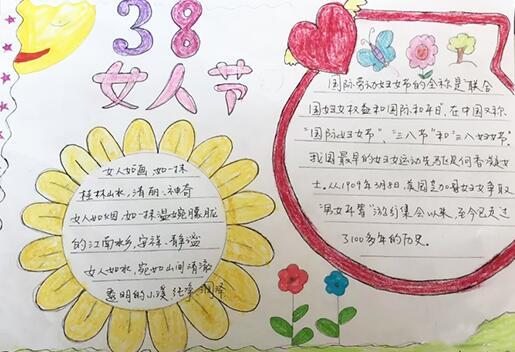 38
女人节
女人如画,如一抹
桂林山水,清丽、神奇
女人如烟,如一抹温婉朦胧
的江南水乡,安祥、静谧
女人如水,宛如山间清澈
透明的小溪 纯净 润泽
国际劳动妇女节的全称是"联合
国妇女权益和国际和平日",在中国又称
"国际妇女节"、"三八节"和"三八妇女节"。
我国最早的妇女运动先驱是何香凝女
士,从1909年3月8日,美国芝加哥妇女争取
"男女平等"游行集会以来,至今已走过
3100多年的历史。